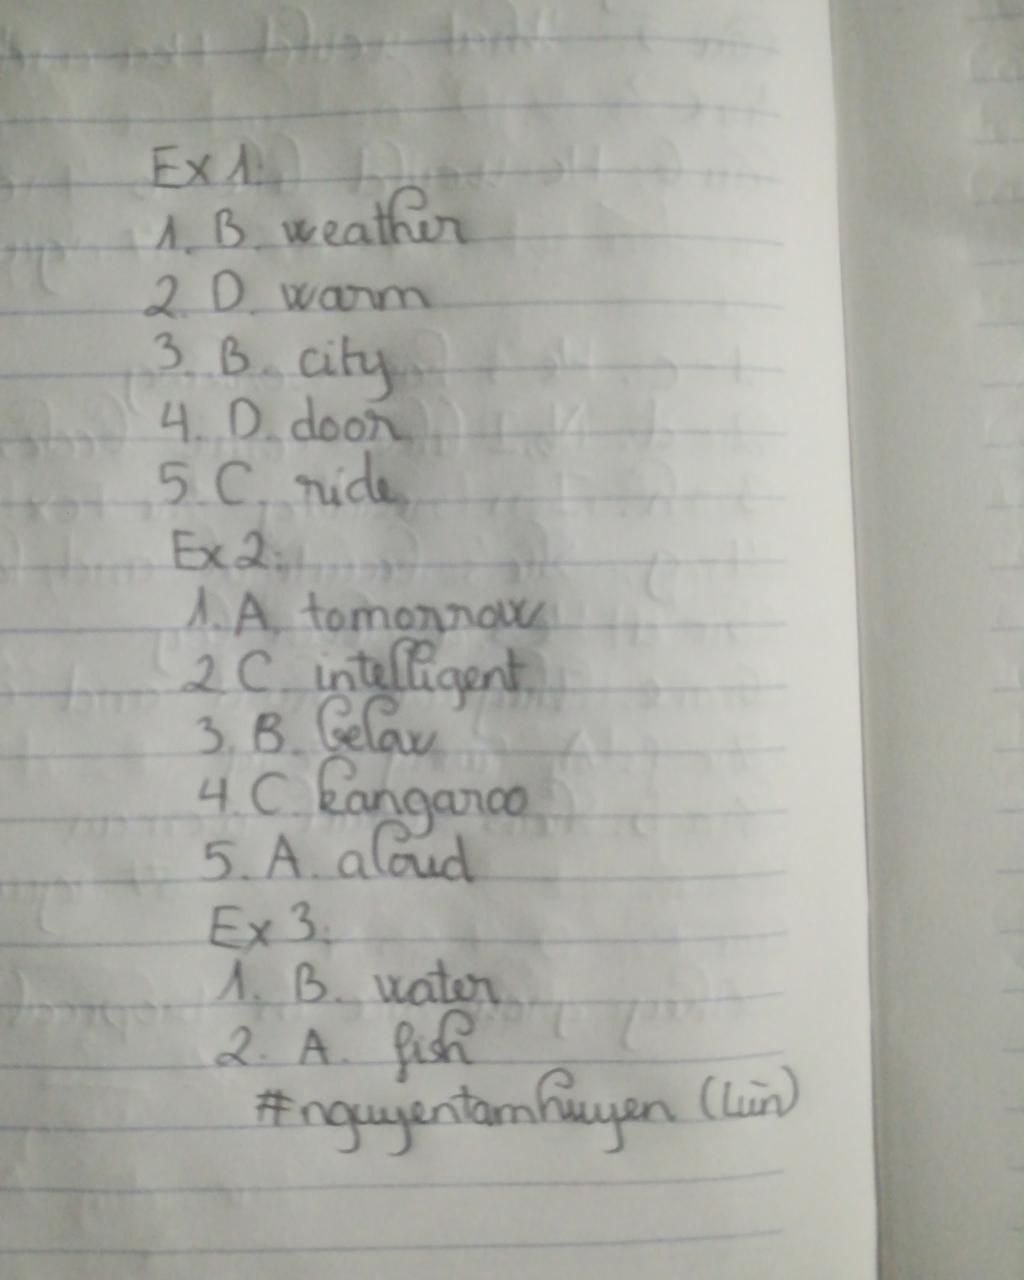 Ex 1:
1. B. weather
2. D. warm
3. B. city
4. D. door
5. C. ride
Ex 2:
1. A. tomorrow
2 C. intelligent
3. B. below
4 C kangaroo
5. A. aloud
Ex 3:
1. B. water
2. A. fish
#nguyentamhuyen (Lùn)